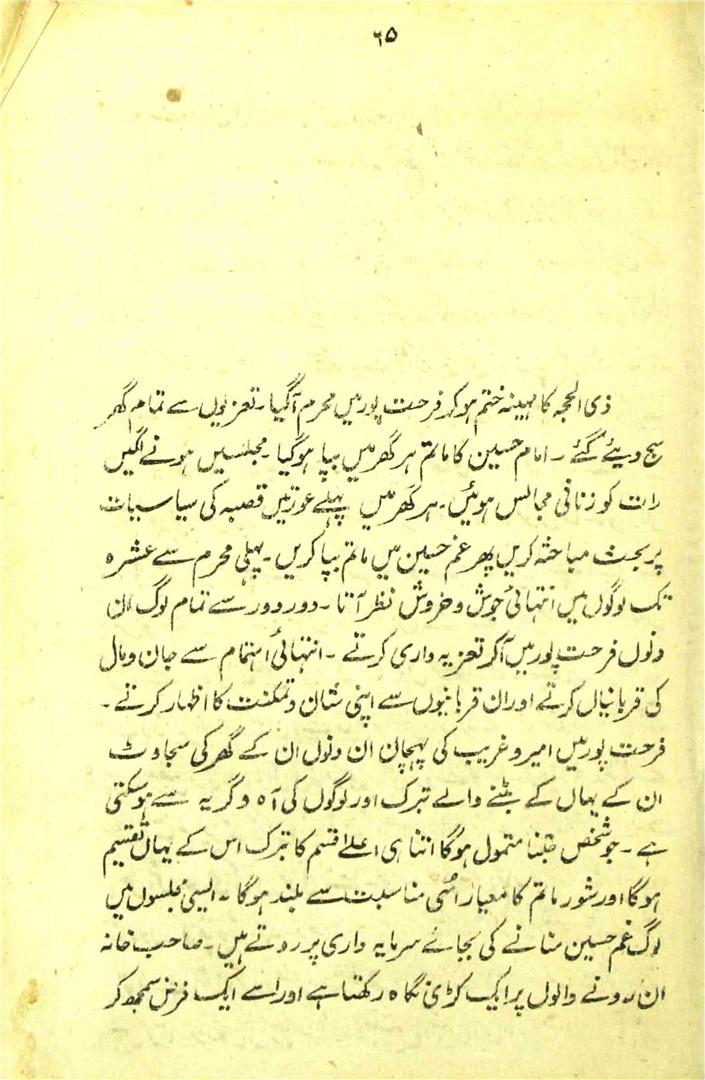 ۶۵
ذی الحجہ کا مہینہ ختم ہوکر فرحت پور میں محرم آگیا۔ تعزیوں سے تمام گھر
سج دیئے گئے ۔ امام حسین کا ماتم ہر گھر میں بپا ہوگیا ۔ مجلسیں ہونے لگیں
رات کو زنانی مجالس ہوئیں۔ ہر گھر میں پہلے عورتیں قصبہ کی سیاسیات
پر بحث مباحثہ کریں پھر غم حسین میں ماتم بپا کریں ۔ پہلی محرم سے عشرہ
تک لوگوں میں انتہائی جوش و خروش نظر آتا ۔ دور دور سے تمام لوگ ان
دنوں فرحت پور میں آکر تعزیہ داری کرتے ۔ انتہائی اہتمام سے جان و مال
کی قربانیاں کرتے اور ان قربانیوں سے اپنی شان و تمکنت کا اظہار کرتے ۔
فرحت پور میں امیر و غریب کی پہچان ان دنوں ان کے گھر کی سجاوٹ
ان کے یہاں کے بٹنے والے تبرک اور لوگوں کی آہ و گریہ سے ہوسکتی
ہے ۔ جو شخص جتنا متمول ہوگا اتنا ہی اعلےٰ قسم کا تبرک اس کے یہاں تقسیم
ہوگا اور شور ماتم کا معیار اسی مناسبت سے بلند ہوگا ۔ ایسی مجلسوں میں
لوگ غم حسین منانے کی بجائے سرمایہ داری پر روتے ہیں ۔ صاحب خانہ
ان رونے والوں پر ایک کڑی نگاہ رکھتا ہے اور اسے ایک فرض سمجھ کر